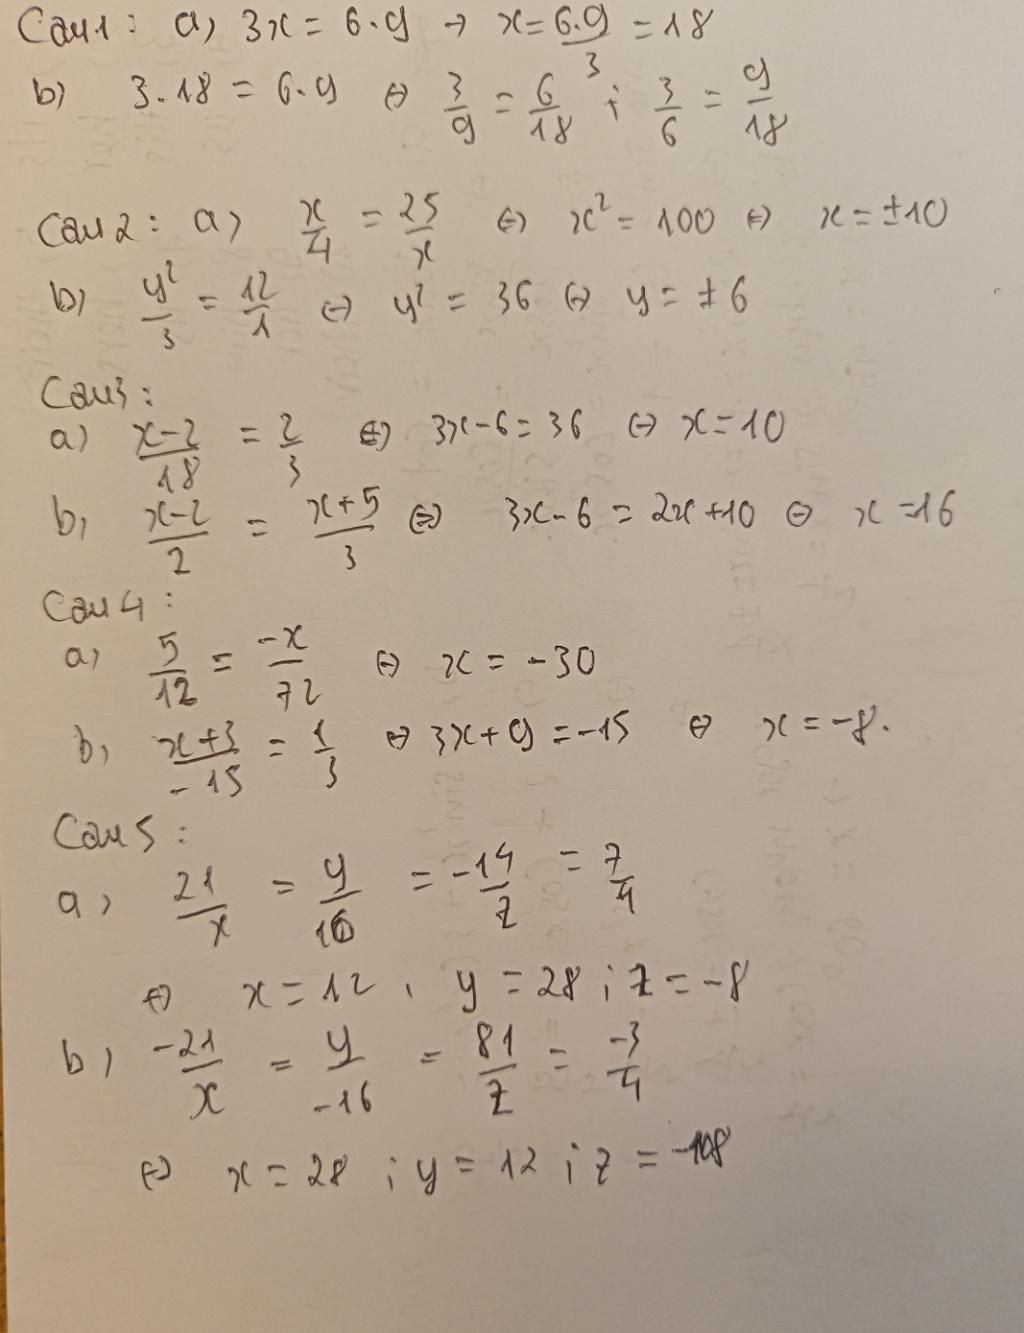 Câu 1: a, 3x = 6.9 → x = 6.9/3 = 18
b) 3.18 = 6.9 ⇔ 3/9 = 6/18 ; 3/6 = 9/18
Câu 2: a) x/4 = 25/x ⇔ x² = 100 ⇔ x = ±10
b) y²/3 = 12/1 ⇔ y² = 36 ⇔ y = ±6
Câu 3:
a) x-2/18 = 2/3 ⇔ 3x-6 = 36 ⇔ x = 10
b, x-2/2 = x+5/3 ⇔ 3x-6 = 2x+10 ⇔ x = 16
Câu 4:
a) 5/12 = -x/72 ⇔ x = -30
b, x+3/-15 = 1/3 ⇔ 3x+9 = -15 ⇔ x = -8.
Câu 5:
a) 21/x = y/16 = -14/z = 7/4
⇔ x = 12, y = 28 ; z = -8
b) -21/x = y/-16 = 81/z = -3/4
⇔ x = 28 ; y = 12 ; z = -108